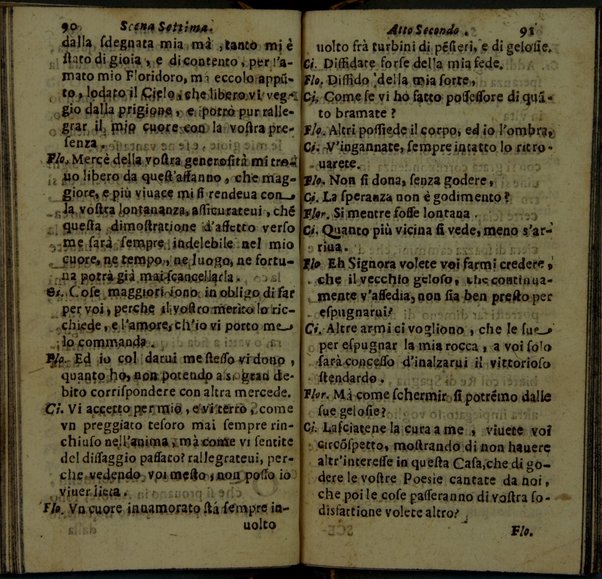 90 Scena Settima.
dalla sdegnata mia mā, tanto mi è
stato di gioia, e di contento, per l'a-
mato mio Floridoro, ma eccolo appū-
to, lodato il Cielo, che libero vi veg-
gio dalla prigione, e potrò pur ralle-
grar il mio cuore con la vostra pre-
senza.
Flo. Mercè della vostra generosità mi tro
uo libero da quest'affanno, che mag-
giore, e più viuace mi si rendeua con
la vostra lontananza, assicurateui, chè
questa dimostratione d'affetto verso
me sarà sempre indelebile nel mio
cuore, ne tempo, ne luogo, ne fortu-
na potrà già mai scancellarla.
Ci. Cose maggiori sono in obligo di far
per voi, perche il vostro merito lo ric-
chiede, e l'amore, ch'io vi porto me
lo commanda.
Flo. Ed io col darui me stesso vi dono,
quanto ho, non potendo a sì gran de-
bito corrispondere con altra mercede.
Ci. Vi accetto per mio, e vi terrò, come
vn preggiato tesoro mai sempre rin-
chiuso nell'anima, mà come vi sentite
del dissaggio passato? rallegrateui, per-
che vedendo voi mesto, non posso io
viuer lieta.
Flo. Vn cuore innamorato stà sempre in-
uolto
Atto Secondo. 91
uolto frà turbini di pēsieri, e di gelosie.
Ci. Diffidate forse della mia fede.
Flo. Diffido della mia sorte,
Ci. Come se vi hò fatto possessore di quā-
to bramate?
Flo. Altri possiede il corpo, ed io l'ombra,
Ci. V'ingannate, sempre intatto lo ritro-
uarete.
Flo. Non si dona, senza godere,
Ci. La speranza non è godimento?
Flor. Si mentre fosse lontana.
Ci. Quanto più vicina si vede, meno s'ar-
riua.
Flo Eh Signora volete voi farmi credere,
che il vecchio geloso, che continua-
mente v'assedia, non sia ben presto per
espugnarui?
Ci. Altre armi ci vogliono, che le sue
per espugnar la mia rocca, a voi solo
sarà concesso d'inalzarui il vittorioso
stendardo.
Flor. Mà come schermir si potrēmo dalle
sue gelosie?
Ci. Lasciatene la cura a me, viuete voi
circōspetto, mostrando di non hauere
altr'interesse in questa Casa, che di go-
dere le vostre Poesie cantate da noi,
che poi le cose passeranno di vostra so-
disfattione volete altro?
Flo.